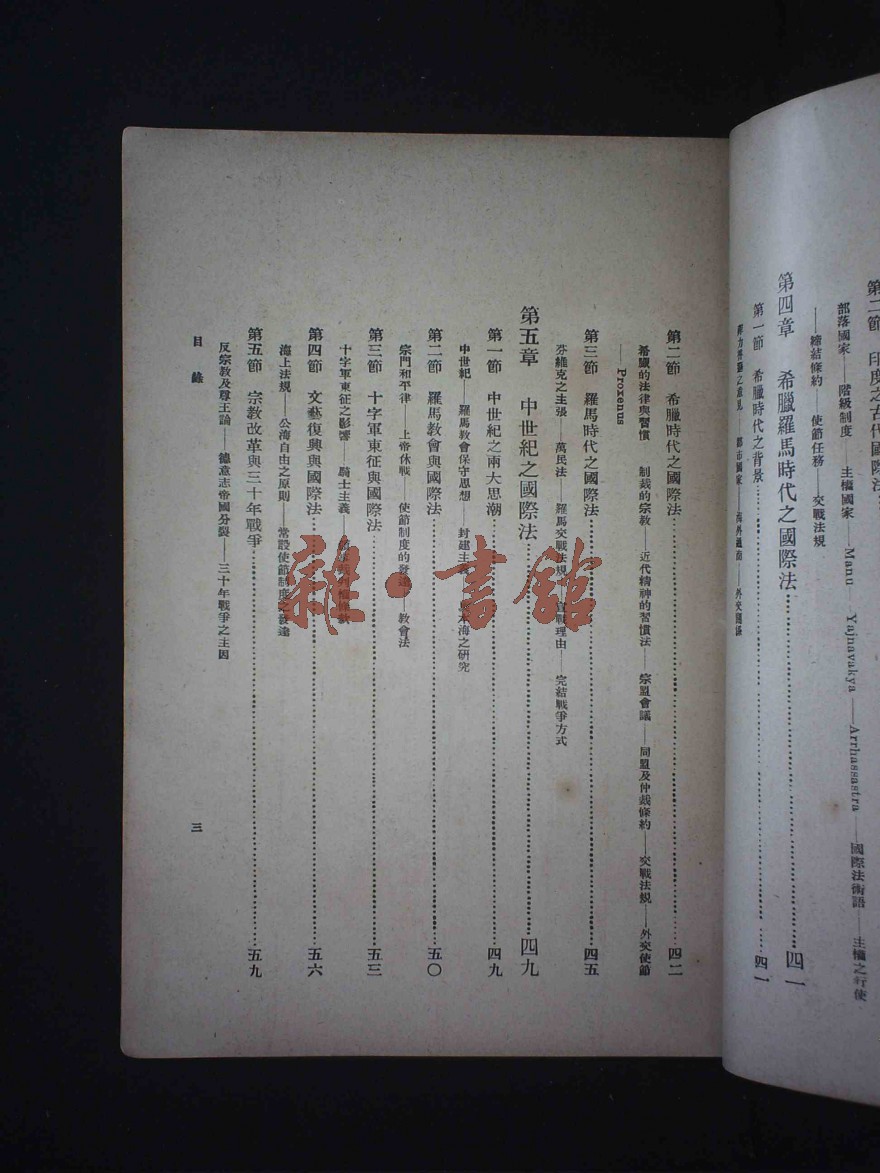 第二節 印度之古代國際法
部落國家——階級制度——主權國家——Manu——Yajnavakya——Arrhassastra——國際法術語——主權之行使
——締結條約——使節任務——交戰法規
第四章 希臘羅馬時代之國際法……四一
第一節 希臘時代之背景……四一
都市國家——海外通商——外交關係
第二節 希臘時代之國際法……四二
希臘的法律與習慣——制裁的宗教——近代精神的習慣法——宗盟會議——同盟及仲裁條約——交戰法規——外交使節
——Proxenus
第三節 羅馬時代之國際法……四五
芬維克之主張——萬民法——羅馬交戰法規——宣戰理由——完結戰爭方式
第五章 中世紀之國際法……四九
第一節 中世紀之兩大思潮……四九
中世紀——羅馬教會保守思想——封建主義——本海之研究
第二節 羅馬教會與國際法……五〇
宗門和平律——上帝休戰——使節制度的發達——教會法
第三節 十字軍東征與國際法……五三
十字軍東征之影響——騎士主義——條款
第四節 文藝復興與國際法……五六
海上法規——公海自由之原則——常設使節制度之發達
第五節 宗教改革與三十年戰爭……五九
反宗教及尊王論——德意志帝國分裂——三十年戰爭之主因
目錄
三
雜·書館